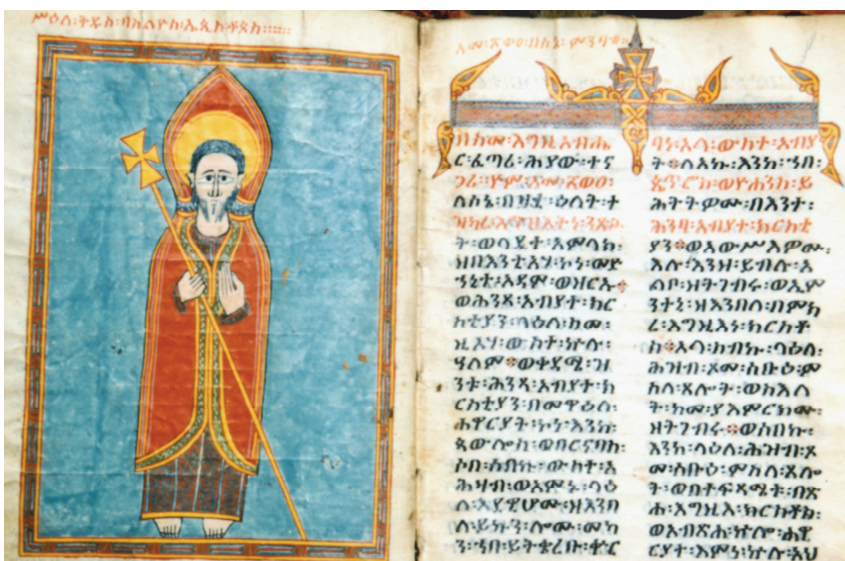 ሥዕለ፡ቅዱስ፡ባስልዮስ፡ኤጲስ፡ቆጶስ፡፡፡፡
በስመ፡እግዚአብሔ
ር፡ፈጣሪ፡ሕያው፡ተና
ጋሪ፡ዮም፡አመ፡፳ወ፩፡
ለሰኔ፡በዛቲ፡ዕለት፡ተ
ዝካረ፡እግዝእትነ፡
ዘበእንቲአሃ፡ኮነ፡መድ
ኀኒቱ፡ለአዳም፡ወዘርኡ፡
ወሕንጻ፡አብያተ፡ክር
ስቲያን፡ባዕለ፡ስመ፡
ዚአሃ፡ውስተ፡ኵሉ፡
ዓለም፡ወቀዳሚ፡ዝ
ንቱ፡ሕንጻ፡አብያተ፡ክ
ርስቲያን፡በመዋዕለ፡
ሐዋርያት፡ኮነ፡እንከ፡
ጳውሎስ፡ወበርናባስ፡
ሶበ፡ሰበኩ፡ውስተ፡አ
ሕዛብ፡ወአምኑ፡
ዘእንበ
ለ፡ይኩን፡ሎሙ፡መካ
ን፡ኀበ፡ይትቄረቡ፡ቍር
ባነ፡አላ፡ውስተ፡አብያ
ት፡ለአኩ፡እንከ፡ኀበ፡
ጴጥሮስ፡ወዮሐንስ፡ይ
ሕትትዎሙ፡በእንተ፡
ሕንጻ፡አብያተ፡ክርስቲ
ያን፡ወአውሥእዎሙ፡
እሉ፡እንዘ፡ይብሉ፡አ
ልቦ፡ዘትገብሩ፡ወኢም
ንተኒ፡ዘእንበለ፡በምክ
ረ፡እግዚእነ፡ክርስቶ
ስ፡አላ፡ስብኩ፡ባዕለ፡
ሕዝብ፡ጾመ፡ሰቡዕ፡ም
ስለ፡ጸሎት፡ወስእለ
ት፡ከመ፡ያእምርክሙ፡
ዘትገብሩ፡ወሰበኩ፡
እንከ፡ላዕለ፡ሕዝብ፡ጾ
መ፡ሰቡዕ፡ምስለ፡ጸሎ
ት፡ወበተፍጻሜት፡በጽ
ሐ፡እግዚእ፡ክርስቶስ፡
ወአብጽሐ፡ኵሎ፡ሐዋ
ርያት፡እምነ፡ኵሉ፡አህ